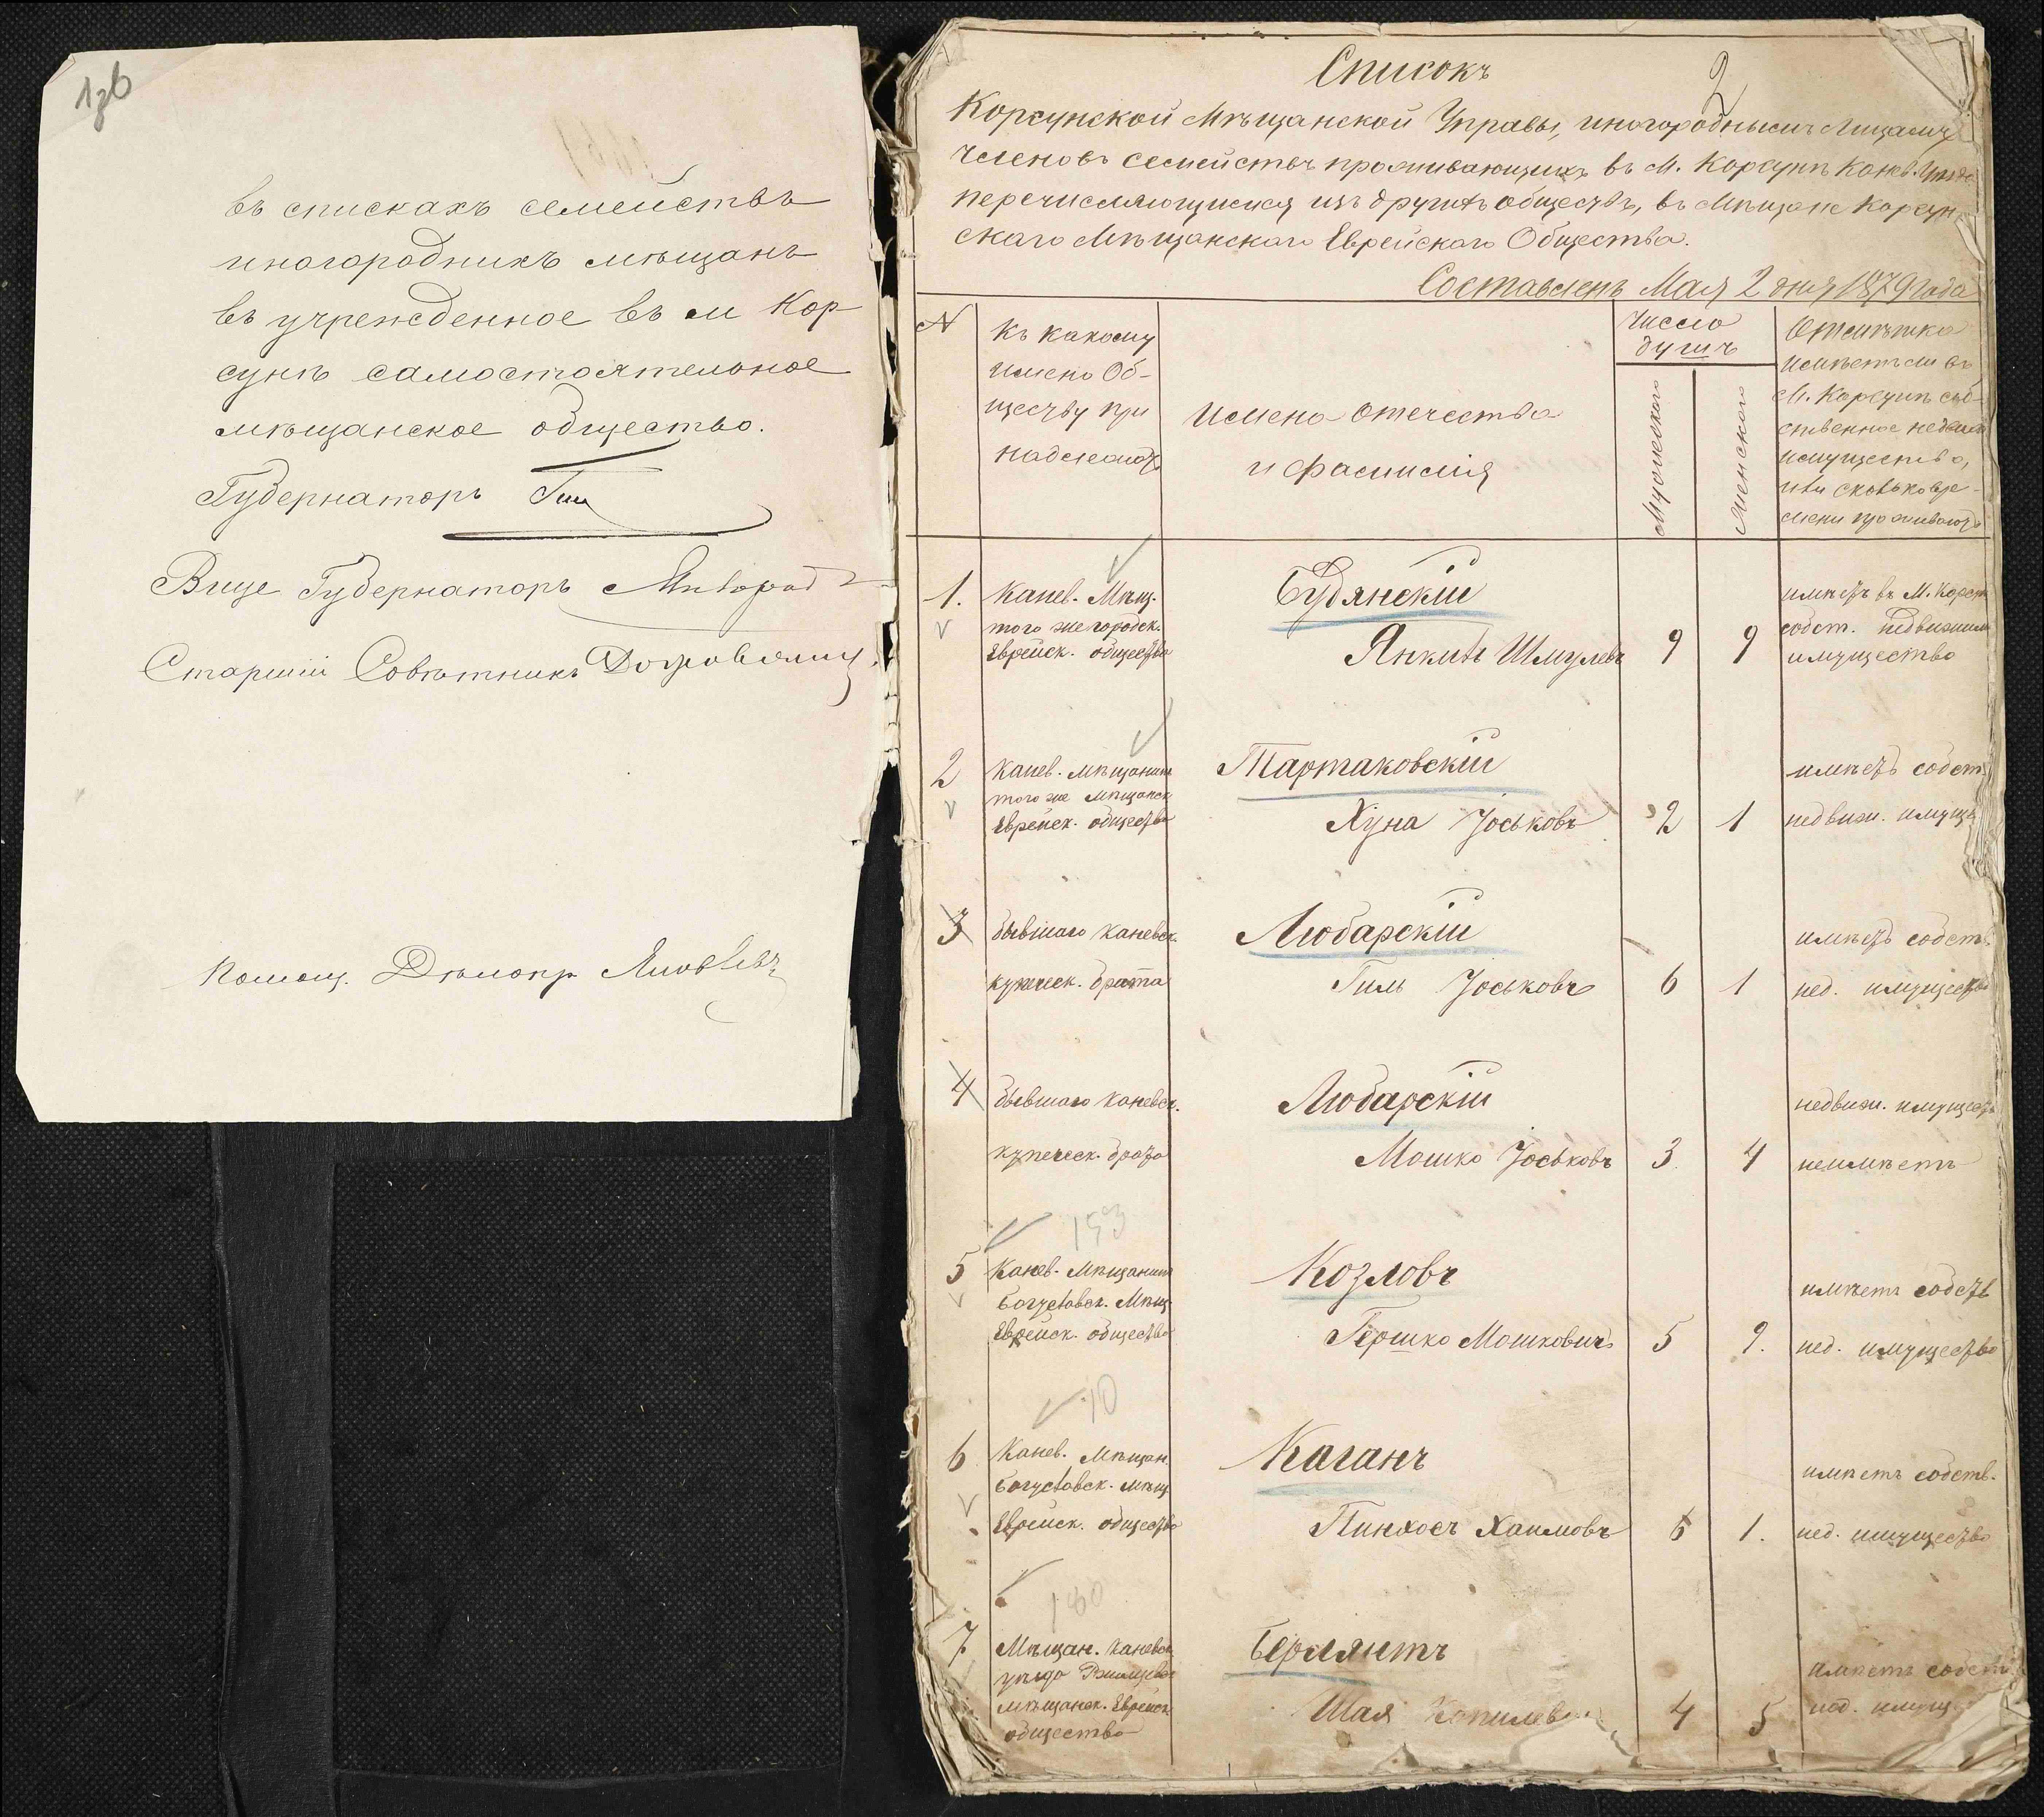 въ спискахъ семействъ
иногороднихъ мѣщанъ
въ учрежденное въ м Кор-
сунѣ самостоятельное
мѣщанское общество.
Губернаторъ
Вице Губернаторъ
Старшій Совѣтникъ
Помощ. Дѣлопр Яковлевъ
2
Списокъ
Корсунской Мѣщанской Управы, иногороднымъ лицамъ
членовъ семействъ проживающихъ въ М. Корсунѣ Канев. Уѣзда
перечисляющимися изъ другихъ обществъ, въ Мѣщане Корсун-
скаго Мѣщанскаго Еврейскаго Общества.
Составленъ Мая 2 дня 1879 года
№
Къ какому
имено Об-
ществу при
надлежатъ
Имена отечества
и фамилія
Число
душъ
Мужескаго
Женскаго
Отмѣтка
имѣетъ ли въ
М. Корсунѣ соб-
ственное недвиж
имущество,
или сколько вре-
мени проживаютъ
1.
Канев. Мѣщ.
того же городск.
Еврейск. общества
Будянскій
Янкель Шмулевъ
9
9
имѣетъ въ М. Корсун
собст. недвижим
имущество
2
Канев. мѣщанинъ
того же мѣщанск
Еврейск. общества
Тартаковскій
Хуна Іоськовъ
2
1
имѣетъ собст.
недвиж. имущ
3
бывшаго каневск.
купеческ. брата
Любарскій
Гиль Іоськовъ
6
1
имѣетъ собств.
нед. имущество
4
бывшаго каневск.
купеческ. брата
Любарскій
Мошко Іоськовъ
3
4
недвиж. имуществ
неимѣетъ
153
5
Канев. Мѣщанинъ
Богуславск. Мѣщ.
Еврейск. общества
Козловъ
Гершко Мошковичъ
5
9.
имѣетъ собств
нед. имущество
10
6
Канев. Мѣщан.
Богуславск. мѣщ
Еврейск. общества
Каганъ
Пинхосъ Хаимовъ
6
1.
имѣетъ собств.
нед. имущество
180
7
Мѣщан. Каневск
уѣзда Ржищевск
мѣщанск. Еврейск
общества
Берлянтъ
Шая Копилев
4
5
имѣетъ собств
нед. имущ